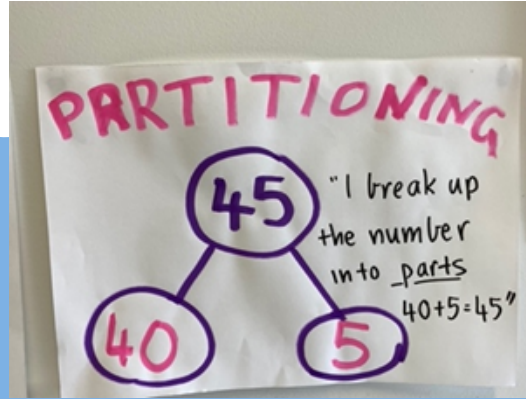 PARTITIONING
45
"I break up
the number
into parts
40+5=45"
40
5